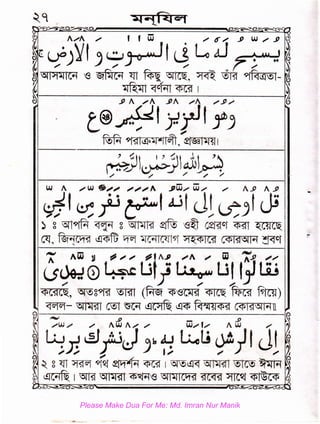 ২৭ মনযিল
يُسَبِّحُ لَهُ مَا فِي السَّمٰوٰتِ وَالْاَرْضِ
আসমানে ও জমিনে যা কিছু আছে, সবই তাঁর পবিত্রতা-
মহিমা বর্ণনা করে।
وَهُوَ الْعَزِيزُ الْحَكِيمُ
তিনি পরাক্রমশালী, প্রজ্ঞাময়।
بِسْمِ اللهِ الرَّحْمٰنِ الرَّحِيمِ
قُلْ اُوحِيَ اِلَيَّ اَنَّهُ اسْتَمَعَ نَفَرٌ مِّنَ الْجِنِّ
১ ঃ আপনি বলুন ঃ আমার প্রতি ওহী প্রেরণ করা হয়েছে
যে, জিনদের একটি দল মনোযোগ সহকারে কোরআন শ্রবণ
فَقَالُوا اِنَّا سَمِعْنَا قُرْاٰنًا عَجَبًا
করেছে, অতঃপর তারা (নিজ কওমের কাছে ফিরে গিয়ে)
বলল- আমরা তো শুনে এসেছি এক বিস্ময়কর কোরআন।
يَّهْدِي اِلَى الرُّشْدِ فَاٰمَنَّا بِهِ وَلَنْ نُّشْرِكَ بِرَبِّنَا
২ ঃ যা সরল পথ প্রদর্শন করে। অতএব আমরা তাতে ঈমান
এনেছি। আর আমরা কখনও আমাদের রবের সাথে কাউকে
Please Make Dua For Me: Md. Imran Nur Manik